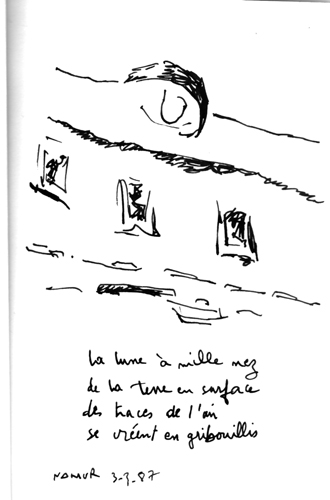 la lune à mille nez
de la terre en surface
des traces de l'air
se créent en gribouillis
NAMUR 3-3-87